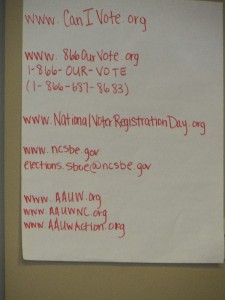 www.CanIVote.org
www.866OurVote.org
1-866-OUR-VOTE
(1-866-687-8683)
www.NationalVoterRegistrationDay.org
www.ncsbe.gov
elections.sboe@ncsbe.gov
www.AAUW.org
www.AAUWNC.org
www.AAUWAction.org